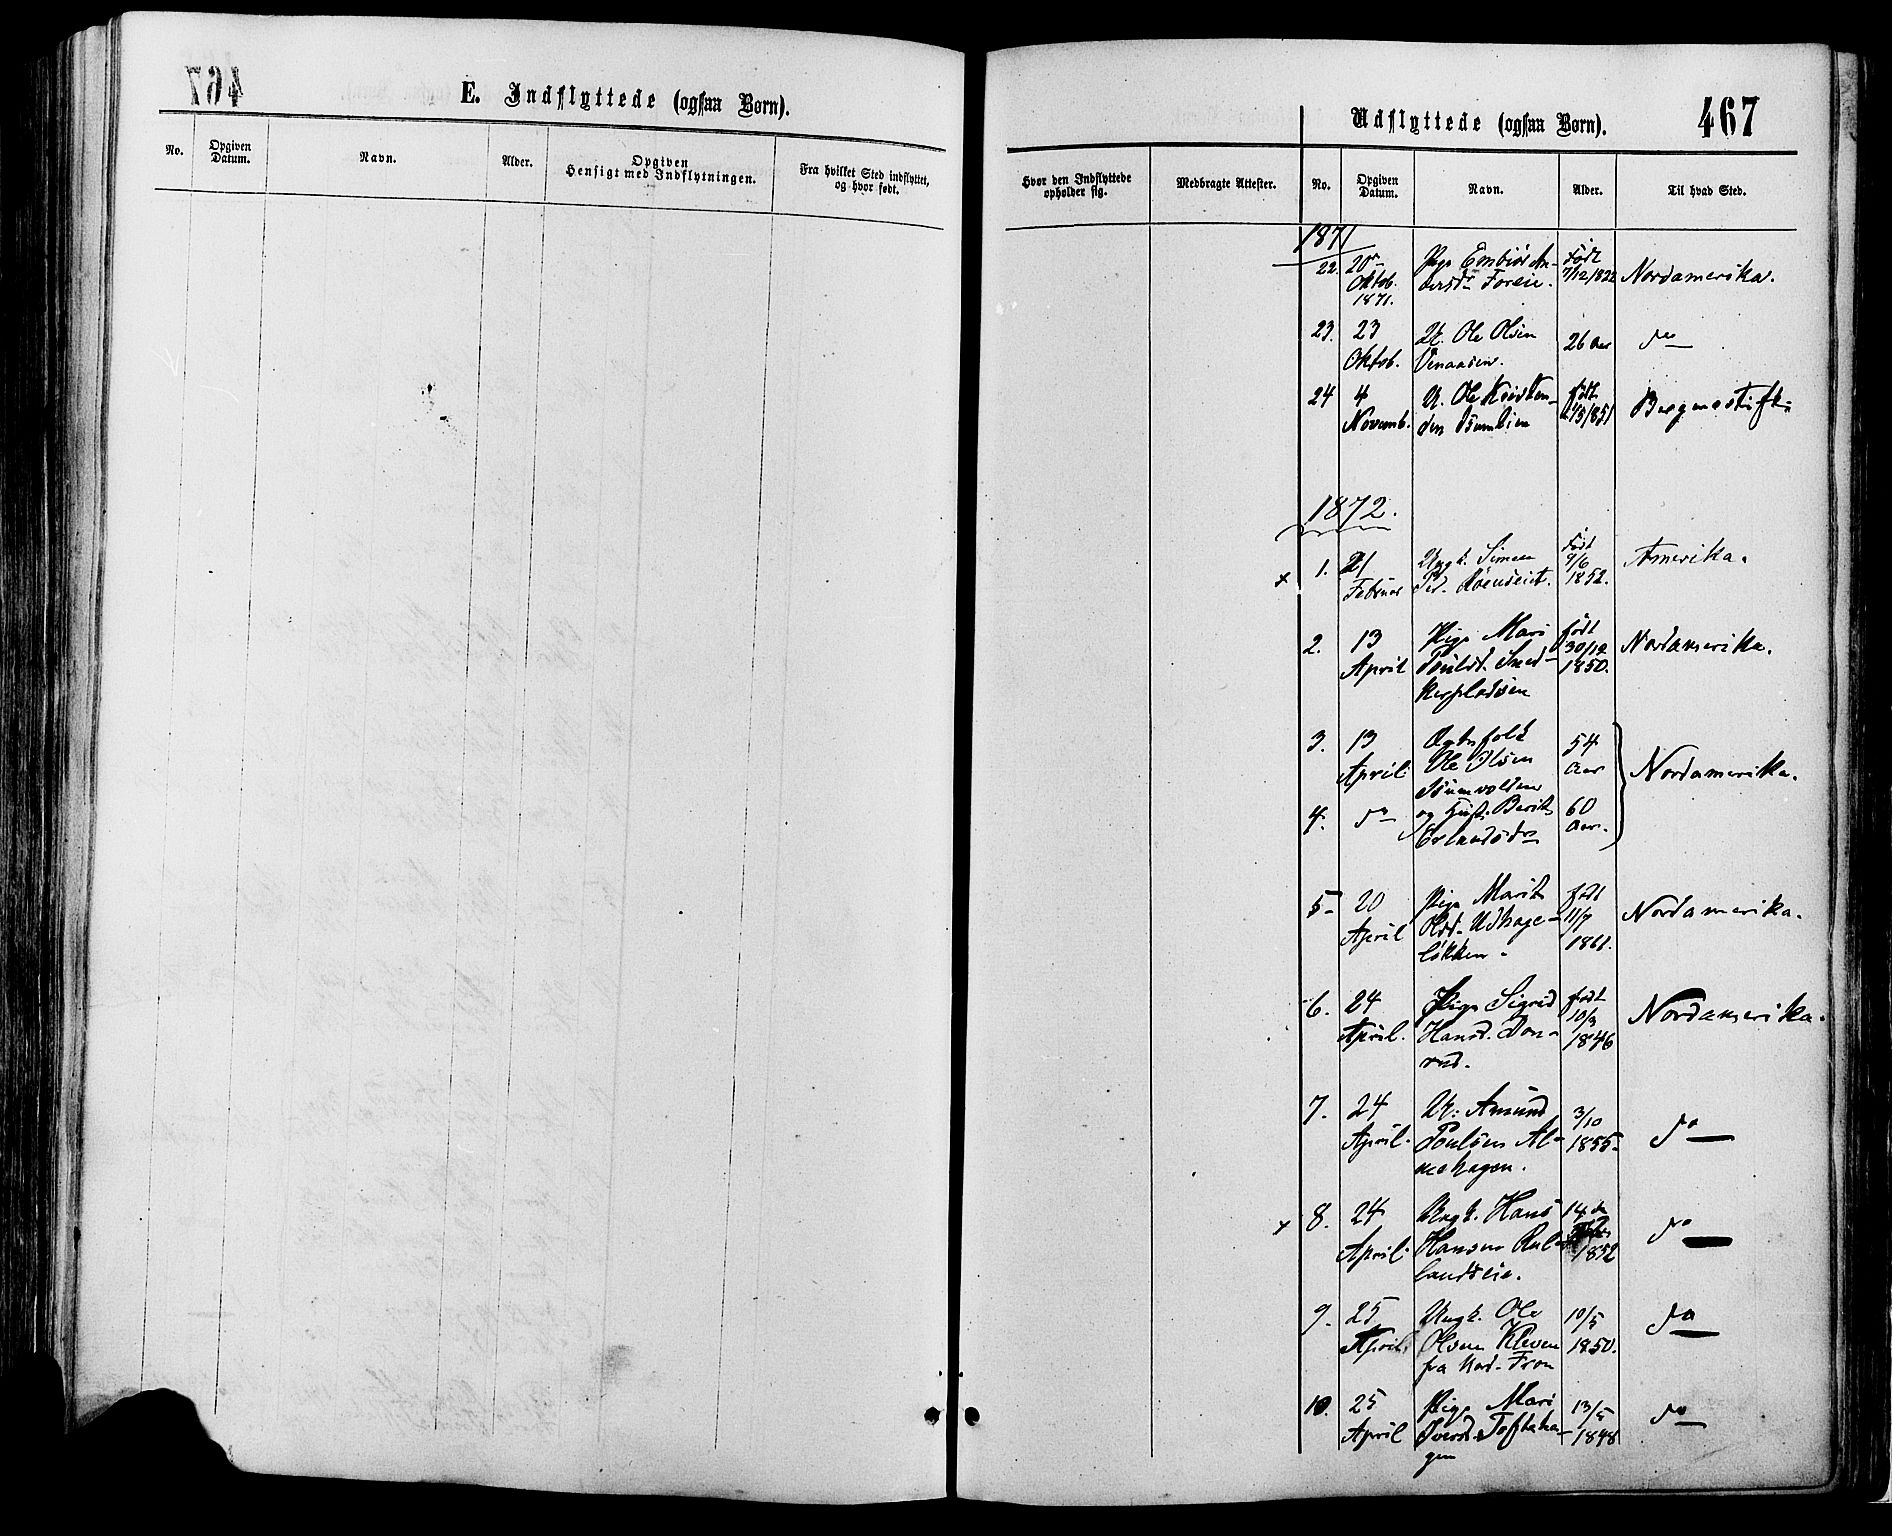 E. Indflyttede (ogsaa Børn).
No.
Opgiven
Datum.
Navn.
Alder.
Opgiven
Hensigt med Indflytningen.
Fra hvilket Sted indflyttet,
og hvor født.
Udflyttede (ogsaa Børn).
467
Hvor den Indflyttede
opholder sig.
Medbragte Attester.
No.
Opgiven
Datum.
Navn.
Alder.
Til hvad Sted.
1871
22. 20de Pige Embiør An- Født Nordamerika.
Oktob. dersdr 7/12/1822
1871.
23. 23 U. Ole Olsen 26 Aar do
Oktob. Venaasen.
24 4 U. Ole Kristen- født
Novemb. sen
1872.
1. 21 Ungk. Simen født 9/6 Amerika.
Februar 1852.
2. 13 Pige Mari født 30/12 Nordamerika.
April Poulsd. Sned- 1850.
kerpladsen
3. 13 Ægtefolk 54
April Ole Olsen Aar Nordamerika.
4. do og Hust. Berit 60
Erlandsdr Aar.
5 20 Pige Marit født 11/7 Nordamerika.
April Olsd. Udhage- 1861.
løkken.
6. 24 Pige Sigrid født 10/3 Nordamerika.
April. Hansd. 1846
rud.
7. 24 U. Amund 3/10 do
April. Poulsen 1855
hagen.
8. 24 Ungk. Hans 14de do
April. Hansen Rul- 1852
landseie.
9. 25 Ungk. Ole 10/5 do
April. Olsen Kleven 1850.
fra Nord-Fron
10. 25 Pige Mari 13/5 do
April Iversd. Tofteha- 1848
gen